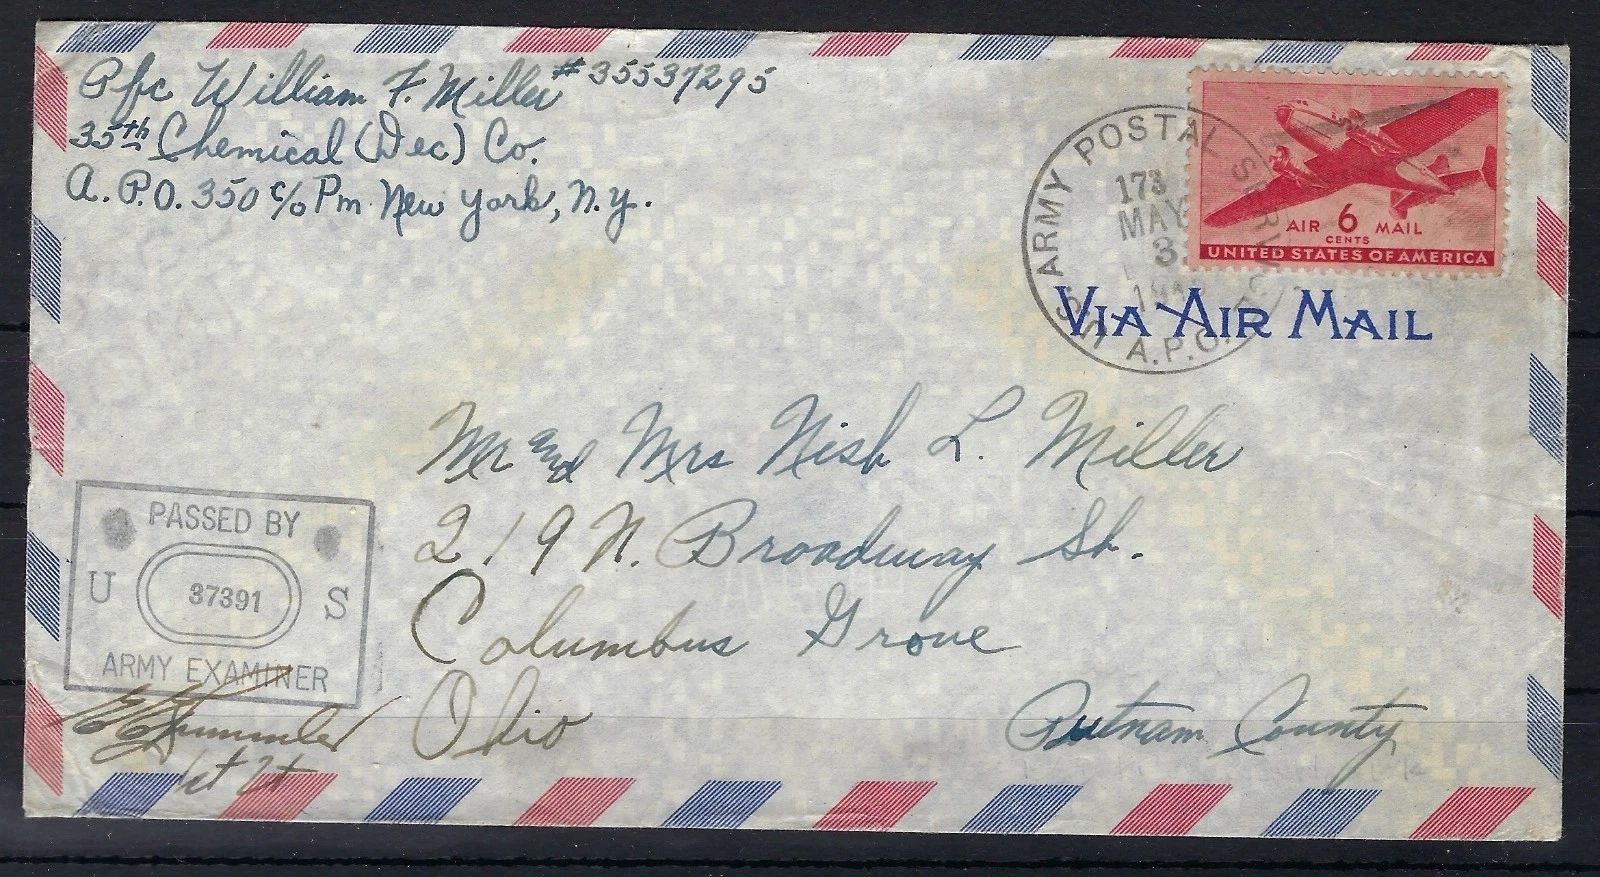 Pfc William F. Miller #35537295
35th Chemical (Dec) Co.
A.P.O. 350 c/o Pm New York, N.Y.
ARMY POSTAL
A.P.O.
MAY
3
AIR 6 MAIL
CENTS
UNITED STATES OF AMERICA
VIA AIR MAIL
Mr and Mrs Nish L. Miller
219 N. Broadway St.
Columbus Grove
Ohio
Putnam County
PASSED BY
U 37391 S
ARMY EXAMINER
1st Lt